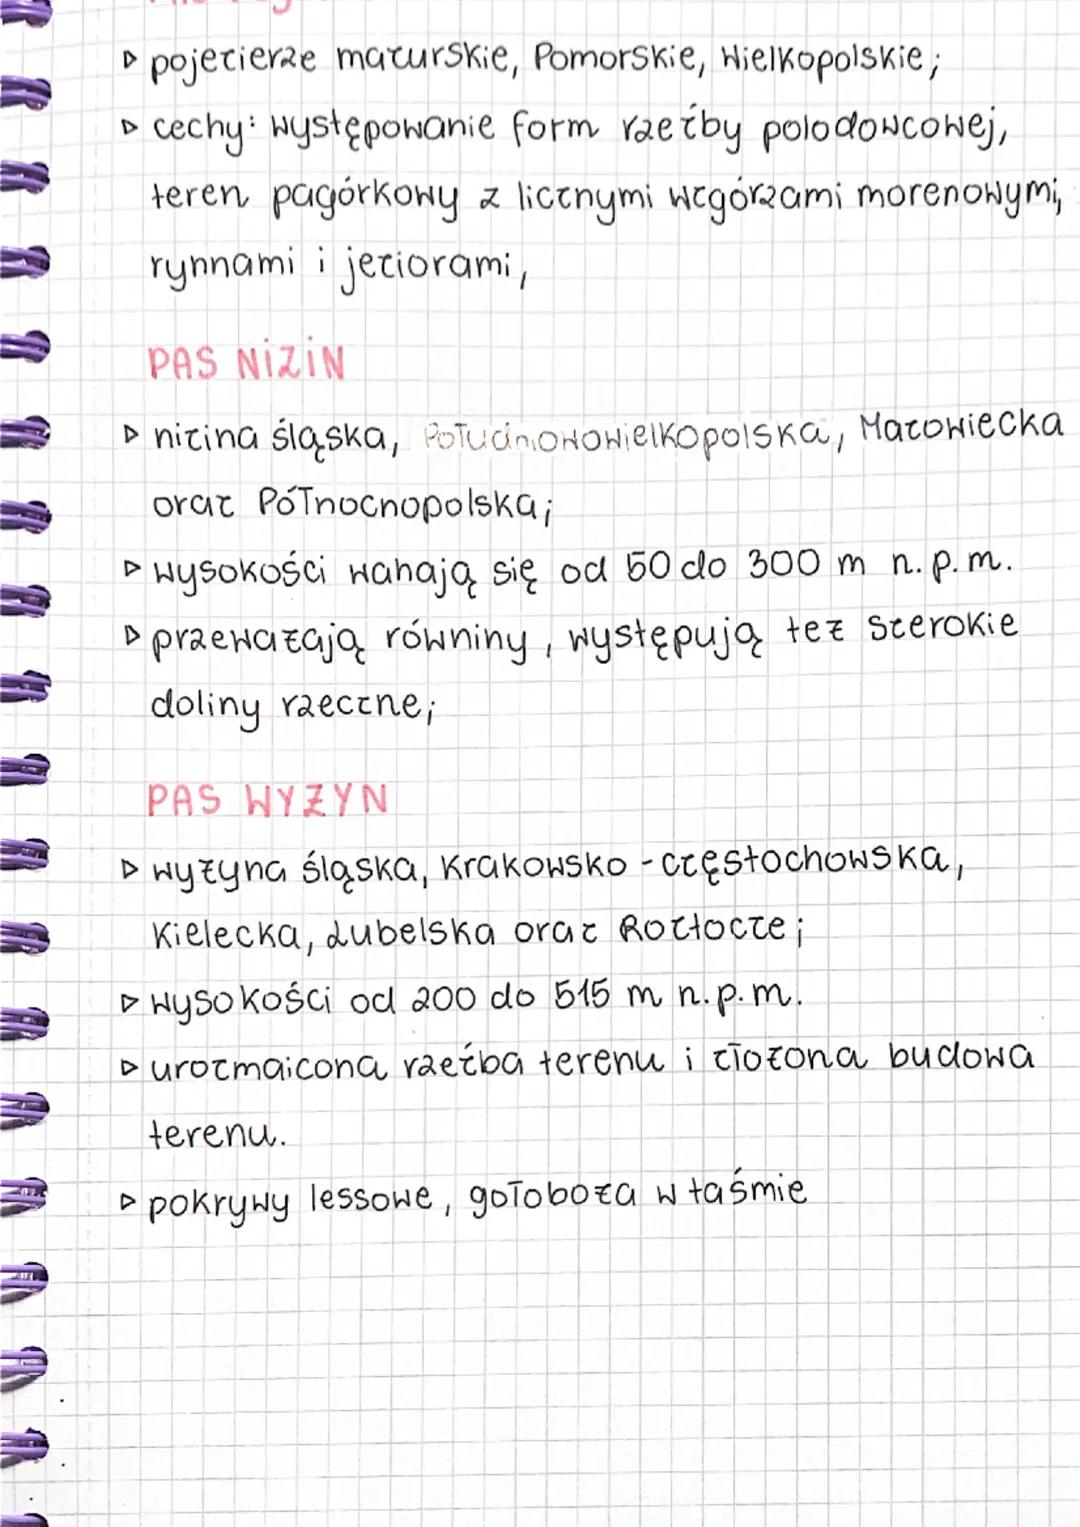 ▷ pojezierze mazurskie, Pomorskie, Wielkopolskie;
▷ cechy: występowanie form rzeźby polodowcowej,
teren pagórkowy z licznymi wzgórzami morenowymi,
rynnami i jeziorami,
PAS NIZIN
▷ nizina śląska, Południowowielkopolska, Mazowiecka
oraz Północnopolska;
▷ wysokości wahają się od 50 do 300 m n.p.m.
▷ przeważają równiny, występują też szerokie
doliny rzeczne;
PAS WYŻYN
▷ wyżyna śląska, Krakowsko - częstochowska,
Kielecka, Lubelska oraz Roztocze;
▷ wysokości od 200 do 515 m n.p.m.
▷ urozmaicona rzeźba terenu i złożona budowa
terenu.
▷ pokrywy lessowe, gołoboża w taśmie